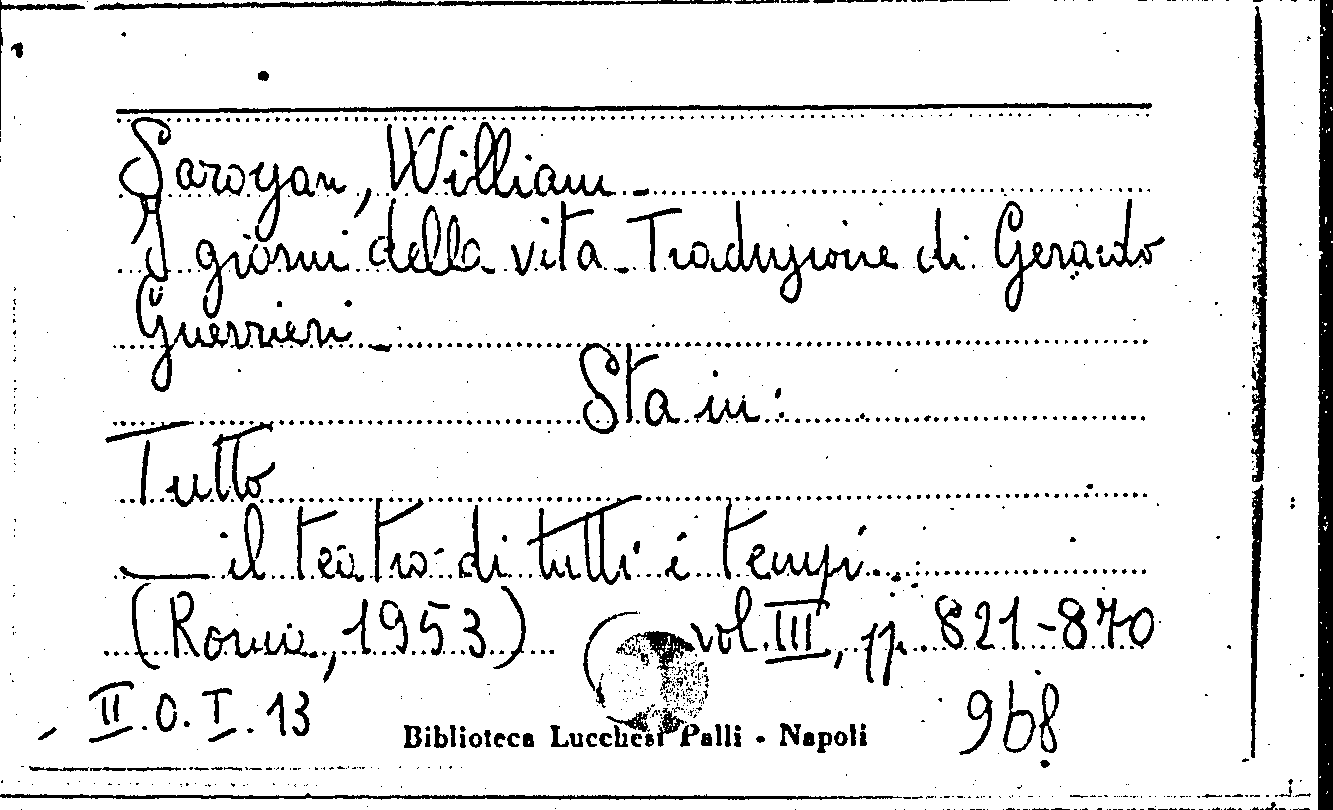 Saroyan, William -
I giorni della vita - Traduzione di Gerardo
Guerrieri -
Sta in:
Tutto
— il teatro di tutti i tempi.
(Roma, 1953) vol. III, pp. 821-870
II. O. I. 13
968
Biblioteca Lucchesi Palli - Napoli